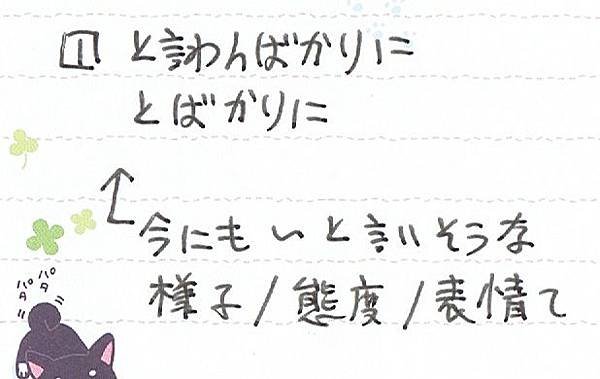 1 と言わんばかりに
とばかりに
↑今にも〜と言いそうな
様子/態度/表情で
パタ パタ